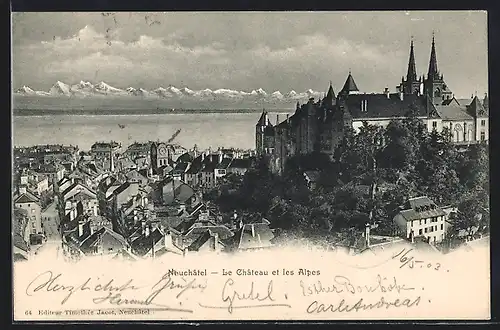 Neuchâtel - Le Château et les Alpes
16/5. 03.
Herzliche Grüsse Gretel. Esther Bonhôte.
Carl Andreas.
64 Editeur Timothée Jacot, Neuchâtel